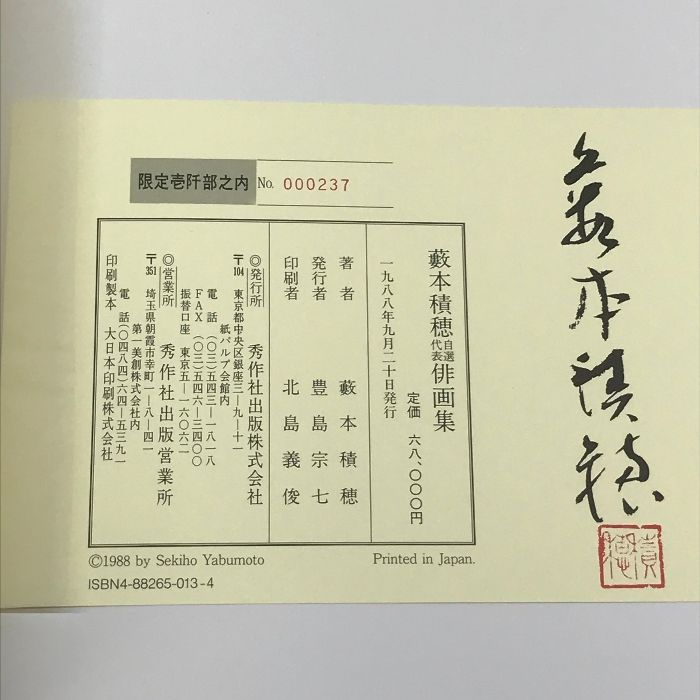 限定壱阡部之内 No. 000237
藪本積穂自選代表俳画集
定価 六八、〇〇〇円
一九八八年九月二十日発行
著者 藪本積穂
発行者 豊島宗七
印刷者 北島義俊
◎発行所 秀作社出版株式会社
〒104 東京都中央区銀座三—九—十一
紙パルプ会館内
電話(〇三)五四三—一八一八
FAX(〇三)五四六—三四〇〇
振替口座 東京五—一六〇六二
◎営業所 秀作社出版営業所
〒351 埼玉県朝霞市幸町一—八—四一
第一美創株式会社内
電話(〇四八四)六四—五三九一
印刷製本 大日本印刷株式会社
©1988 by Sekiho Yabumoto Printed in Japan.
ISBN4-88265-013-4
藪本積穂
積穂